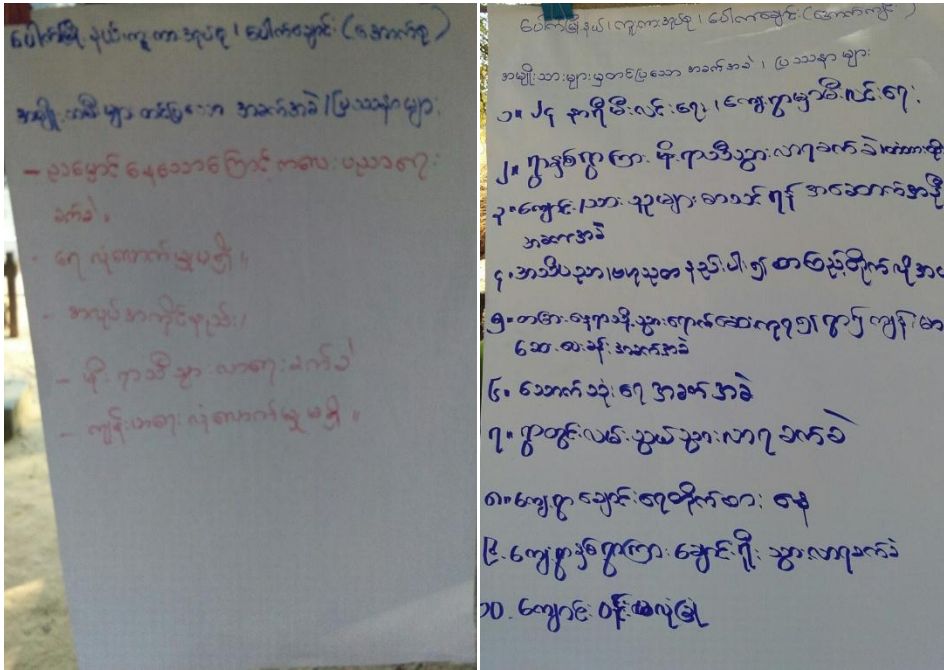 ပေါက်မြို့နယ်၊ ကူကားအုပ်စု၊ ပေါက်ချောင်း (အောက်စု)
အမျိုးသမီးများ တင်ပြသော အခက်အခဲ၊ ပြဿနာများ
- ဥသမှောင်နေသောကြောင့် ကလေး ပညာရေး
ခက်ခဲ။
- ရေ လုံလောက်မှုမရှိ။
- အလုပ်အကိုင်နည်း၊
- မိုးရာသီသွားလာရေးခက်ခဲ
- ကျန်းမာရေးလုံလောက်မှုမရှိ။
ပေါက်မြို့နယ်၊ ကူကားအုပ်စု၊ ပေါက်ချောင်း (အောက်ကျင်း)
အမျိုးသားများမှတင်ပြသော အခက်အခဲ၊ ပြဿနာများ
၁။ ၂၄ နာရီမီးလင်းရေး၊ ကျေးရွာမှာမီးလင်းရေး
၂။ ရွာနှစ်ရွာကြား မိုးရာသီသွားလာရခက်ခဲ၊
၃။ ကျောင်းသား သူများစာသင်ရန် အဆောက်အအုံ
အခက်အခဲ
၄။ အသိပညာ၊ ဗဟုသုတ နည်းပါး၍ စာကြည့်တိုက်လို
၅။ တခြားနေရာသို့သွားရောက်ဆေးကုရ၍ ရွာ၌ ကျန်းမာ
ဆေးပေးခန်း အခက်အခဲ
၆။ သောက်သုံးရေ အခက်အခဲ
၇။ ရွာတွင်းလမ်းသွယ်သွားလာရခက်ခဲ
၈။ ကျေးရွာချောင်းရေတိုက်စားနေ
၉။ ကျေးရွာနှစ်ရွာကြား ချောင်းရိုး သွားလာရခက်ခဲ
၁၀. ကျောင်းဝန်းမလုံခြုံ